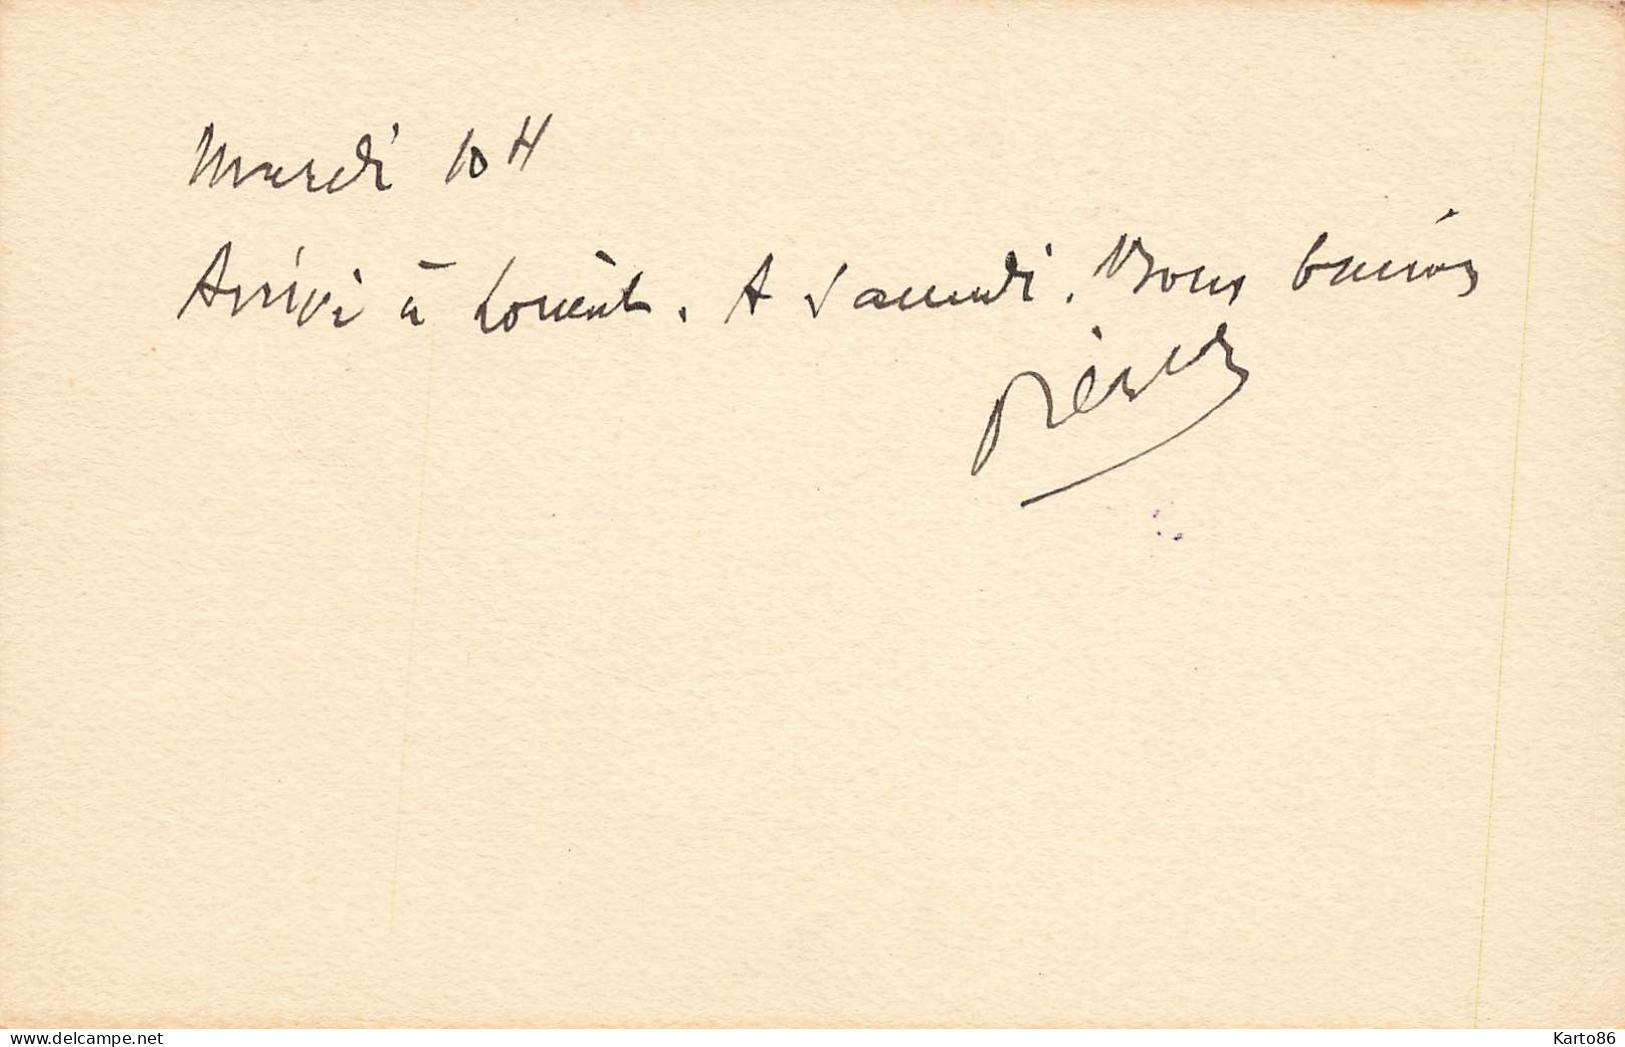 Mardi 10 H
Arrivé à Lorient. A Samedi. Bons baisers
Pierre
www.delcampe.net
Karto86